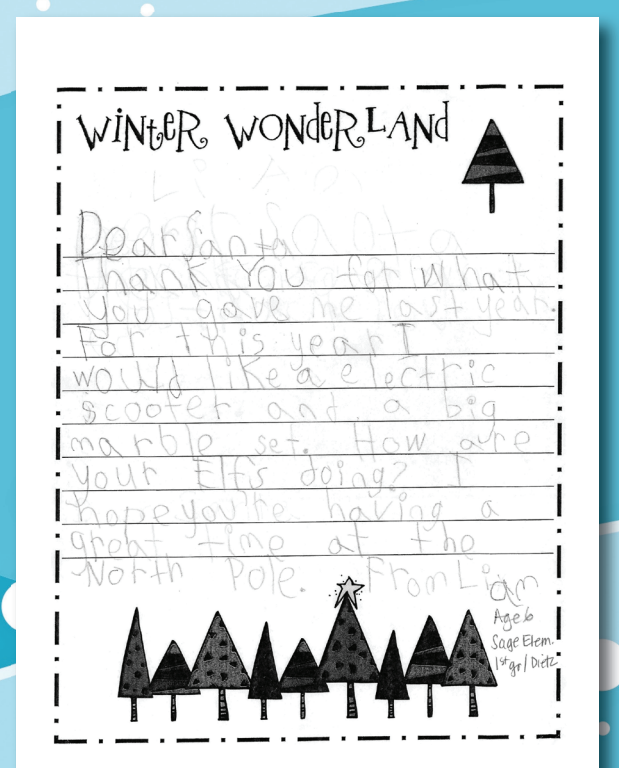 WINTER WONDERLAND
Dear Santa
Thank You for what
you gave me last year.
For this year I
would like a electric
scooter and a big
marble set. How are
your Elfs doing? I
hope you're having a
great time at the
North Pole. From Liam
Age 6
Sage Elem.
1st gr/Dietz